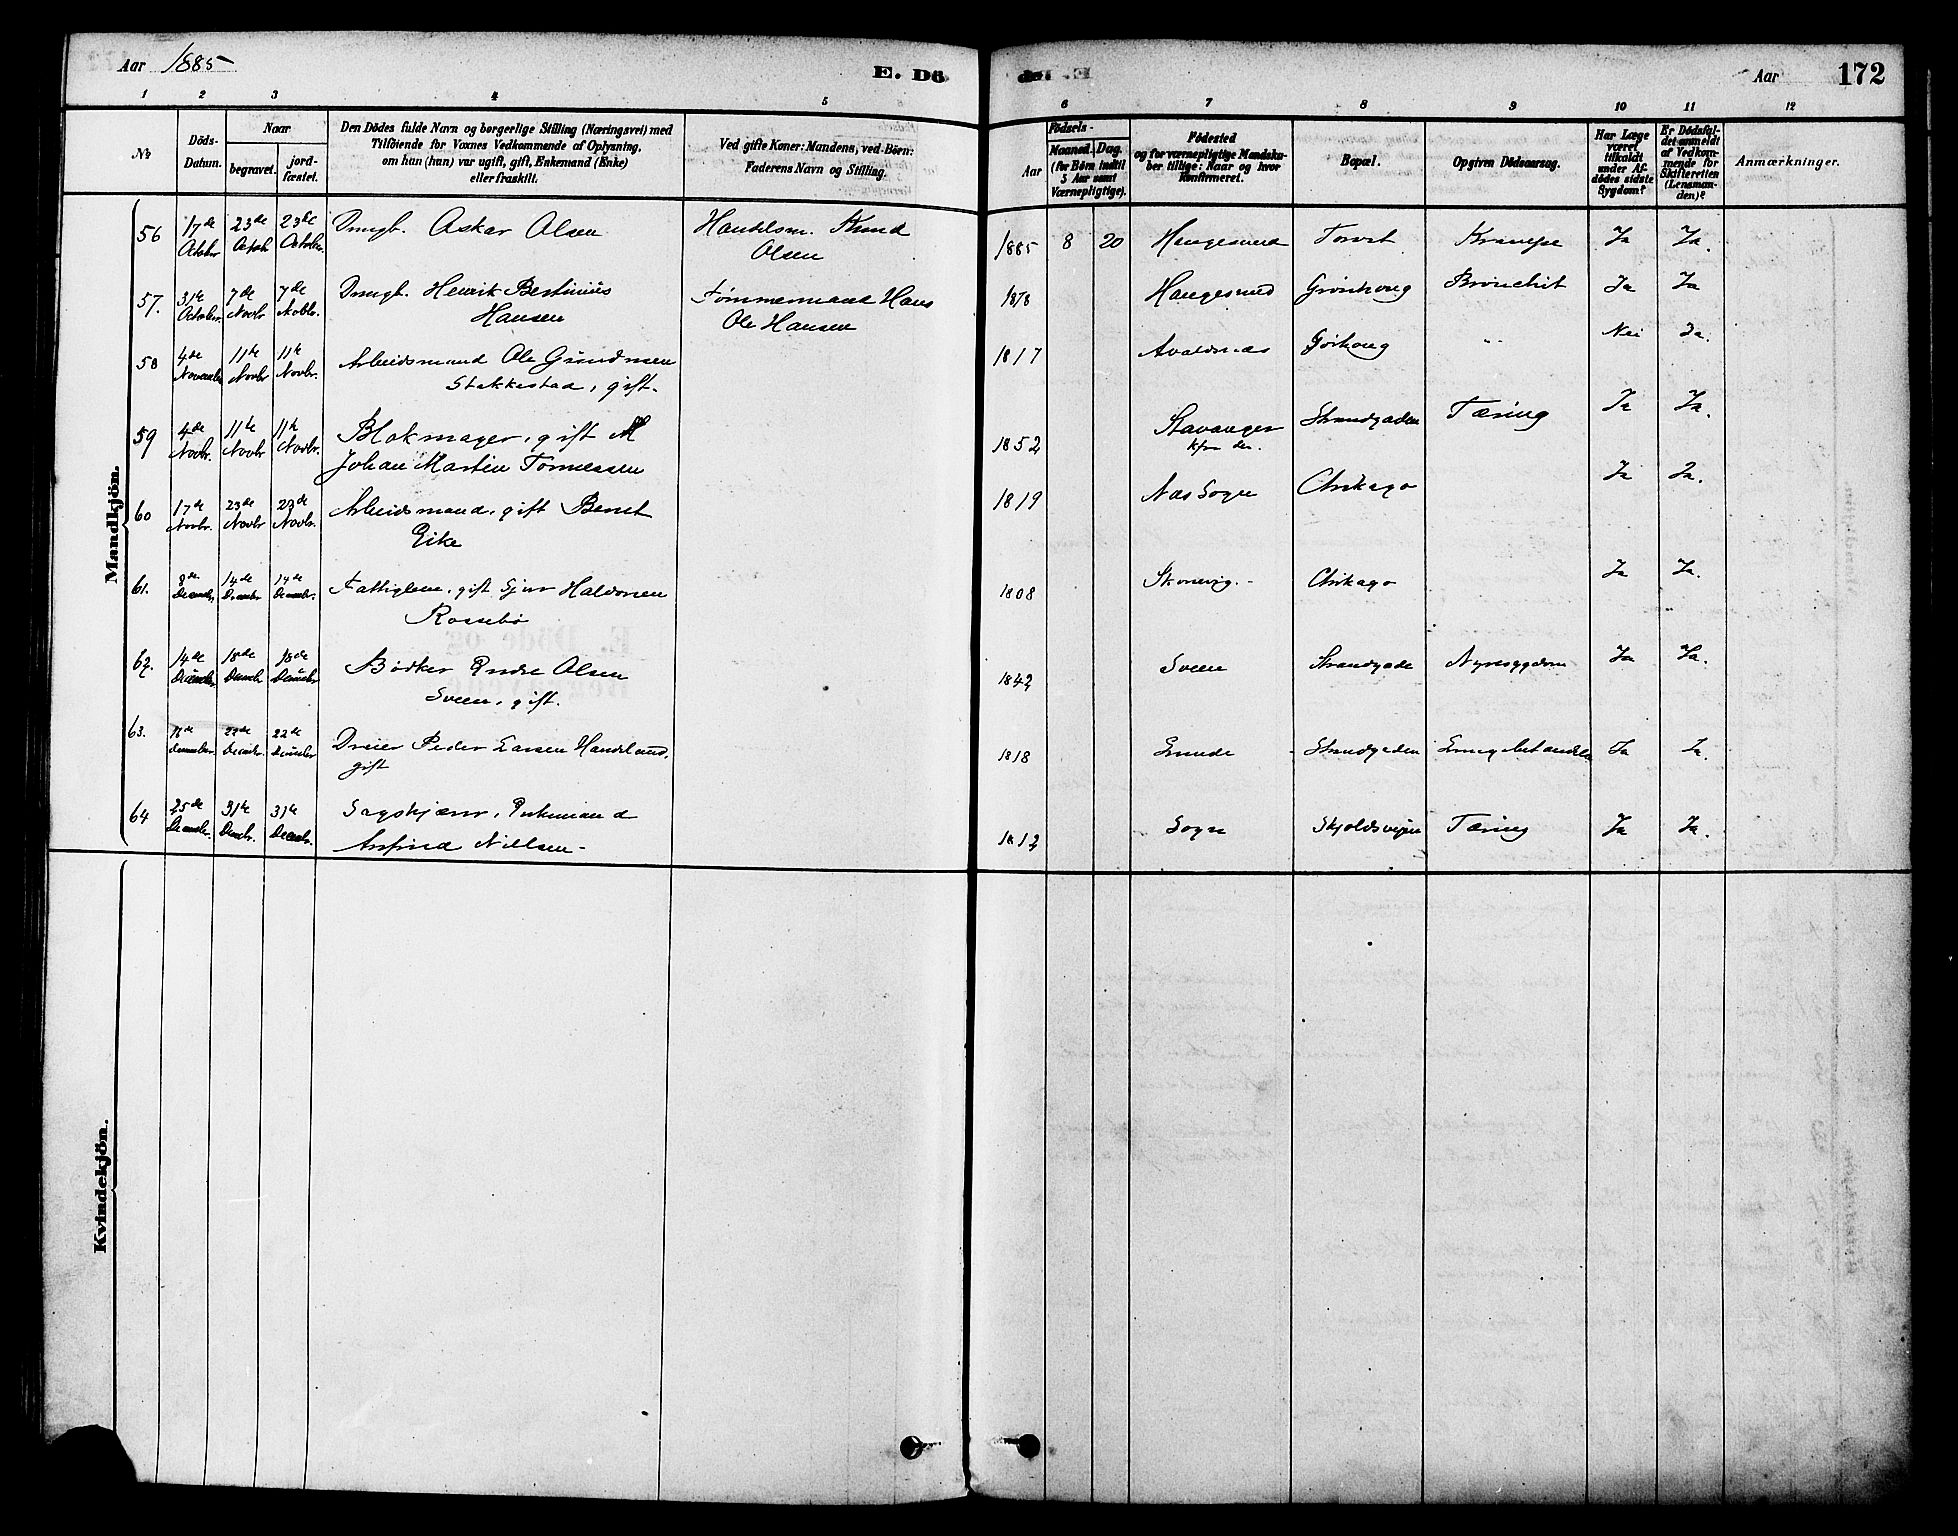 Aar 1885
E. Dö
Aar
172
1 2 3 4 5 6 7 8 9 10 11 12
№
Döds-Datum.
Naar
begravet.
jord-fæstet.
Den Dödes fulde Navn og borgerlige Stilling (Næringsvei) med
Tilföiende for Voxnes Vedkommende af Oplysning,
om hun (han) var ugift, gift, Enkemand (Enke)
eller fraskilt.
Ved gifte Koner: Mandens, ved Börn:
Faderens Navn og Stilling.
Födsels-
Aar
Maaned. Dag.
(for Börn indtil
5 Aar samt
Værnepligtige).
Födested
og for værnepligtige Mandska-
ber tillige: Naar og hvor
Konfirmeret.
Bopæl.
Opgiven Dödsaarsag.
Har Læge
været
tilkaldt
under Af-
dödes sidste
Sygdom?
Er Dödsfal-
det anmeldt
af Vedkom-
mende for
Skifteretten
(Lensman-
den)?
Anmærkninger.
Mandkjön.
56 17de 23de 23de Drengb. Askar Olsen Handelsm. Knud 1885 8 20 Haugesund Torvet Ja Ja.
October October. Olsen
57. 31te 7de 7de Drengb. Henrik Bertinius Tømmermand Hans 1878 Haugesund Grönhoug Bronchit Ja Ja
October Novbr Novbr. Hansen Ole Hansen
58 4de 11te 11te Arbeidsmand Ole Gundmsen 1817 Avaldsnæs " Nei Ja.
November Novbr Novbr. Stakkestad, gift.
59 4de 11te 11te Blokmager, gift 1852 Stavanger Strandgaden Tæring Ja Ja.
Novbr. Novbr Novbr. Johan Martin Tønnessen
60 17de 23de 23de Arbeidsmand, gift Bernt 1819 Næs Sogn Chikago Ja Ja.
Novbr. Novbr Novbr. Eike
61. 8de 14de 14de gift Sjur Halvorsen 1808 Skonevig. Chikago Ja Ja.
December December December. Rossebø
62. 14de 18de 18de Bødker Endre Olsen 1842 Sveen Strandgade Nyresygdom Ja Ja.
December. December December. Sveen, gift.
63. 22de 22de Dreier Peder Larsen Handeland, 1818 Strandgaden Ja Ja.
December. December. December gift
64 25de 31te 31te Enkemand 1812 Sogn Skjoldsveien Tæring Ja Ja.
December. December. December. Arnfind Nielsen
Kvindekjön.